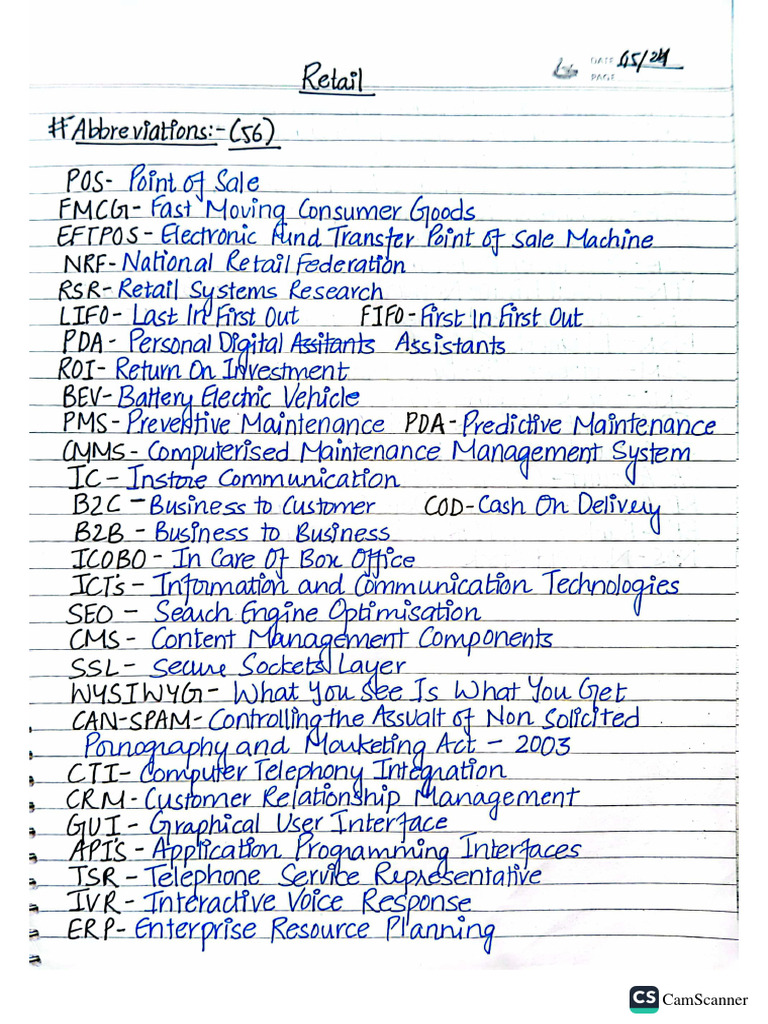 DATE 05/24
PAGE
Retail
# Abbreviations:- (56)
POS- Point of Sale
FMCG- Fast Moving Consumer Goods
EFTPOS- Electronic Fund Transfer Point of Sale Machine
NRF- National Retail Federation
RSR- Retail Systems Research
LIFO- Last In First Out FIFO- First In First Out
PDA- Personal Digital Assitants Assistants
ROI- Return On Investment
BEV- Battery Electric Vehicle
PMS- Preventive Maintenance PDA- Predictive Maintenance
CMMS- Computerised Maintenance Management System
IC- Instore Communication
B2C - Business to Customer COD- Cash On Delivery
B2B - Business to Business
ICOBO- In Care Of Box Office
ICT's- Information and Communication Technologies
SEO - Search Engine Optimisation
CMS- Content Management Components
SSL- Secure Sockets Layer
WYSIWYG- What You See Is What You Get
CAN-SPAM- Controlling the Assualt of Non Solicited
Pornography and Marketing Act - 2003
CTI- Computer Telephony Integration
CRM- Customer Relationship Management
GUI- Graphical User Interface
API's- Application Programming Interfaces
TSR- Telephone Service Representative
IVR- Interactive Voice Response
ERP- Enterprise Resource Planning
CS CamScanner